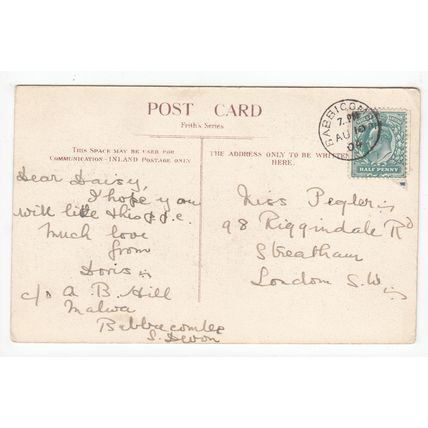 POST CARD
Frith's Series
THIS SPACE MAY BE USED FOR
COMMUNICATION—INLAND POSTAGE ONLY
THE ADDRESS ONLY TO BE WRITTEN
HERE.
BABBICOMBE
7. PM
AU 10
04
HALF PENNY
Dear Daisy,
I hope you
will like this p.p.c.
Much love
from
Doris
c/o A. B. Hill
Malwa
Babbacombe
S. Devon
Miss Pegler
98 Riggindale Rd
Streatham
London S.W.